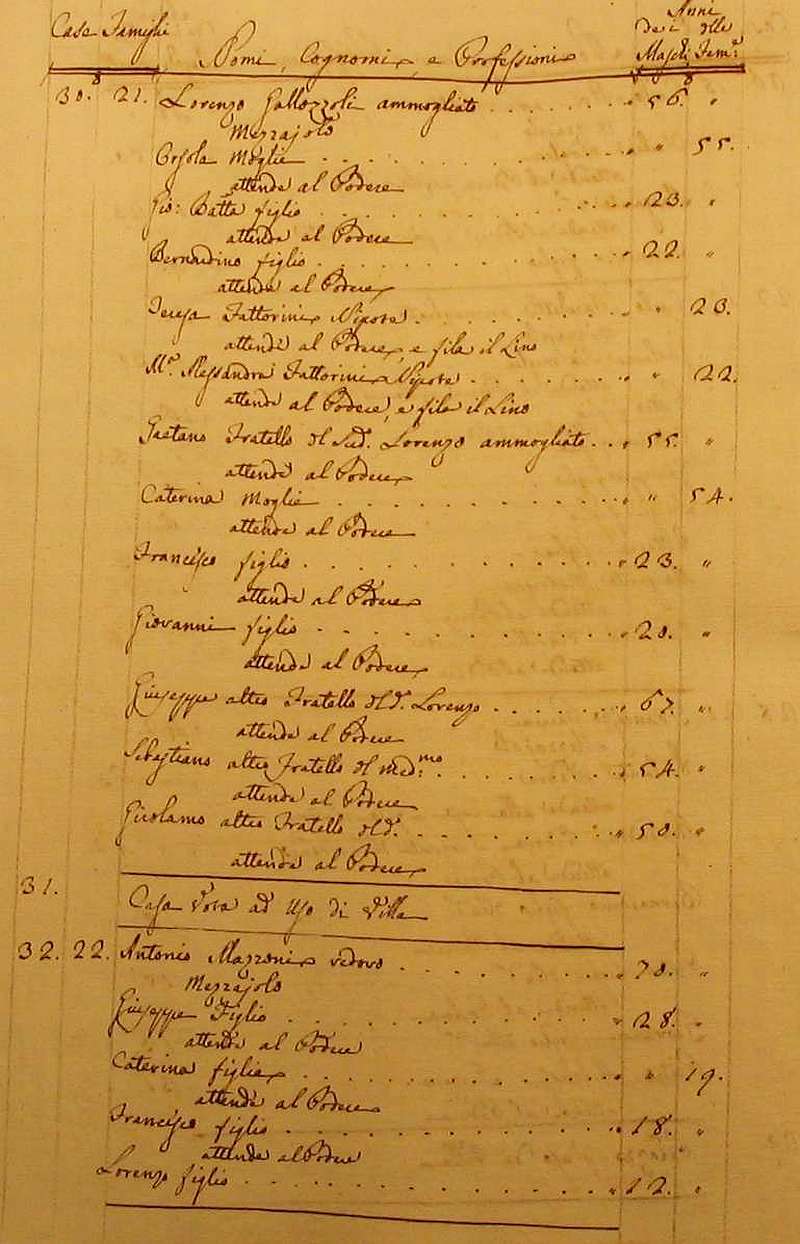 Case Famiglie Nomi, Cognomi, e Professioni Anni dei Maschi delle Fem.e
30. 21. Lorenzo Gallozzoli ammogliato . . . . . . . 56. "
Mezzajolo
Orsola Moglie . . . . . . . . " 55.
attende al Podere
Gio: Batta figlio . . . . . . . . 23. "
attende al Podere
Bernardino figlio . . . . . . . . 22. "
attende al Podere
Teresa Fattorini Nipote . . . . . . " 23.
attende al Podere, e fila il Lino
M.a Alessandra Fattorini Nipote . . . . . . " 22.
attende al Podere, e fila il Lino
Gaetano Fratello del Sud.o Lorenzo ammogliato . . . 55. "
attende al Podere
Caterina Moglie . . . . . . . . " 54.
attende al Podere
Francesco figlio . . . . . . . . 23. "
attende al Podere
Giovanni figlio . . . . . . . . 20. "
attende al Podere
Giuseppe altro Fratello del d.o Lorenzo . . . . . . 67. "
attende al Podere
Sebastiano altro Fratello del med:mo . . . . . . 54. "
attende al Podere
Girolamo altro Fratello del d.o . . . . . . 50. "
attende al Podere
31. Casa Vota ad Uso di Villa
32. 22. Antonio Mazzoni vedovo . . . . . . . 70. "
Mezzajolo
Giuseppe Figlio . . . . . . . . 28. "
attende al Podere
Caterina figlia . . . . . . . . " 19.
attende al Podere
Francesco figlio . . . . . . . . 18. "
attende al Podere
Lorenzo figlio . . . . . . . . 12. "